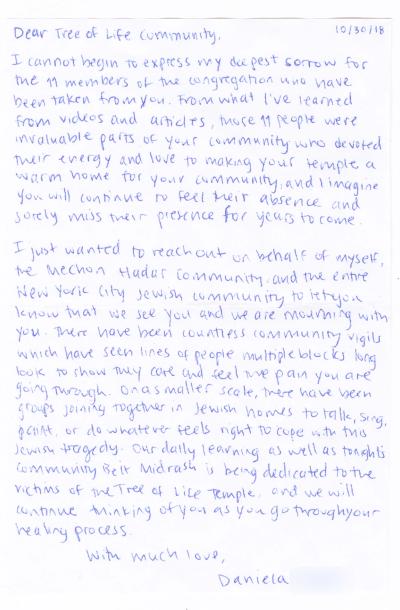 10/30/18
Dear Tree of Life Community,
I cannot begin to express my deepest sorrow for
the 11 members of the congregation who have
been taken from you. From what I've learned
from videos and articles, those 11 people were
invaluable parts of your community who devoted
their energy and love to making your temple a
warm home for your community, and I imagine
you will continue to feel their absence and
sorely miss their presence for years to come.
I just wanted to reach out on behalf of myself,
the Mechon Hadar Community, and the entire
New York City Jewish community to let you
know that we see you and we are mourning with
you. There have been countless community vigils
which have seen lines of people multiple blocks long
look to show they care and feel the pain you are
going through. On a smaller scale, there have been
groups joining together in Jewish homes to talk, sing,
paint, or do whatever feels right to cope with this
Jewish tragedy. Our daily learning as well as tonight's
community Beit Midrash is being dedicated to the
victims of the Tree of Life Temple, and we will
continue thinking of you as you go through your
healing process.
With much love,
Daniela